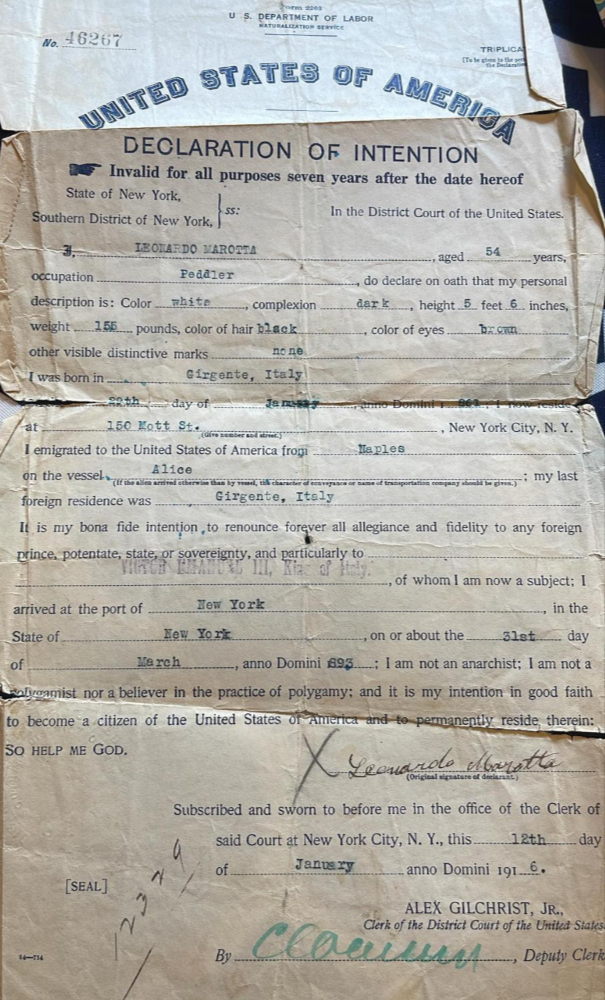 Form 2203
U. S. DEPARTMENT OF LABOR
NATURALIZATION SERVICE
No. 46267
TRIPLICA
[To be given to the per
the Declaratio
UNITED STATES OF AMERICA
DECLARATION OF INTENTION
Invalid for all purposes seven years after the date hereof
State of New York,
Southern District of New York,
ss:
In the District Court of the United States.
I, LEONARDO MAROTTA, aged 54 years,
occupation Peddler, do declare on oath that my personal
description is: Color white, complexion dark, height 5 feet 6 inches,
weight 155 pounds, color of hair black, color of eyes brown
other visible distinctive marks none
I was born in Girgente, Italy
day of January, anno Domini 1 861; I now reside
at 150 Mott St., New York City, N. Y.
(Give number and street.)
I emigrated to the United States of America from Naples
on the vessel Alice; my last
(If the alien arrived otherwise than by vessel, the character of conveyance or name of transportation company should be given.)
foreign residence was Girgente, Italy
It is my bona fide intention to renounce forever all allegiance and fidelity to any foreign
prince, potentate, state, or sovereignty, and particularly to
VICTOR EMANUEL III, King of Italy, of whom I am now a subject; I
arrived at the port of New York, in the
State of New York, on or about the 31st day
of March, anno Domini 893; I am not an anarchist; I am not a
polygamist nor a believer in the practice of polygamy; and it is my intention in good faith
to become a citizen of the United States of America and to permanently reside therein:
SO HELP ME GOD.
X Leonardo Marotta
(Original signature of declarant.)
Subscribed and sworn to before me in the office of the Clerk of
said Court at New York City, N. Y., this 12th day
of January anno Domini 191 6.
[SEAL]
ALEX GILCHRIST, JR.,
Clerk of the District Court of the United States
By , Deputy Clerk
14—714